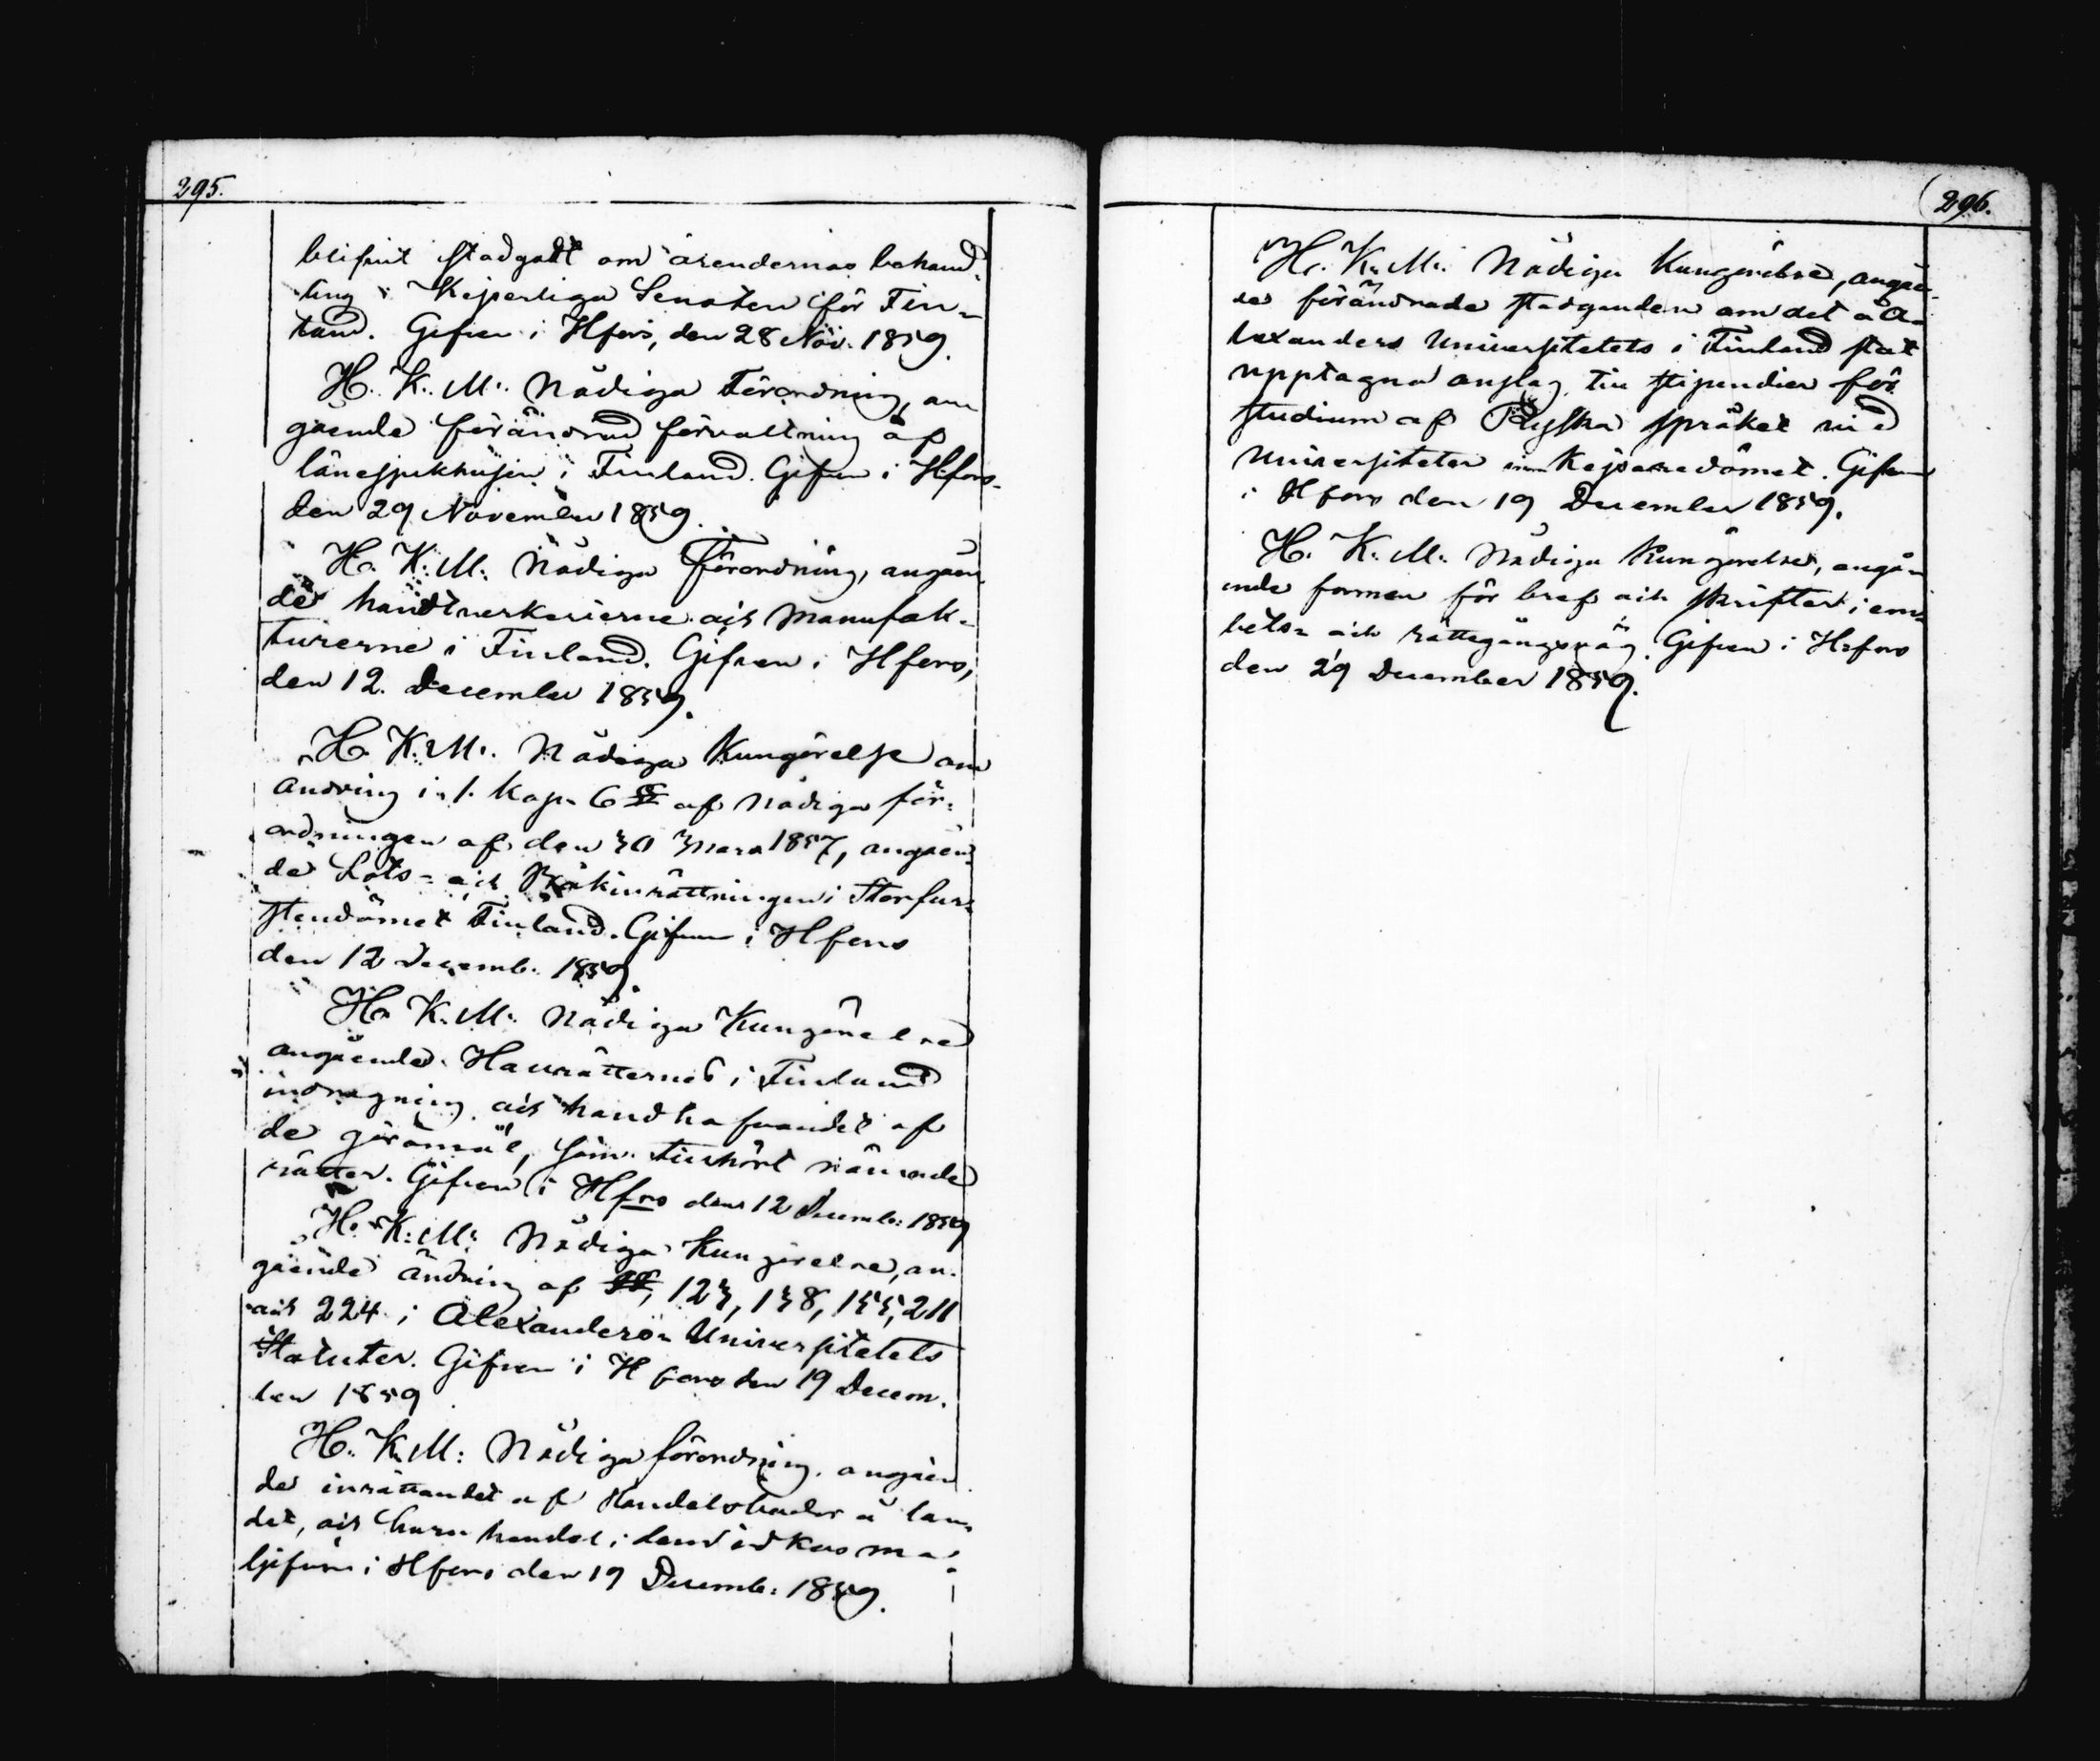 295.
blifvit stadgadt om ärendernas behand-
ling i Kejserliga Senaten för Fin-
land. Gifven i Hfors, den 28 Nov. 1859.
H. K. M:s Nådiga Förordning, an
gående förändrad förvaltning af
länesjukhusen i Finland. Gifven i H:fors
den 29 November 1859.
H. K: M: Nådiga Förordning, angåen-
de handtverkerierne och Manufak-
turerne i Finland. Gifven i Hfors,
den 12. December 1859.
H. K. M:. Nådiga Kungörelse om
ändring i 1. Kap. 6 § af Nådiga för-
ordningen af den 30 Mars 1857, angåen-
de Lots- och Båkinrättningen i Storfur-
stendömet Finland. Gifven i Hfors
den 12 Decemb. 1859.
H. K. M: Nådiga Kungörelse
angående Hallrätternes i Finland
indragning och handhafvandet af
de göromål, som tillhört nämnde
rätter. Gifven i Hfors den 12 Decemb: 1859
H. K: M: Nådiga Kungörelse, an-
gående ändring af §§, 123, 138, 155, 211
och 224 i Alexanders- Universitetets
Statuter. Gifven i Hfors den 19 Decem-
ber 1859.
H. K. M: Nådiga förordning, angåen
de inrättandet af Handelsbodar å lan-
det, och huru handel i dem idkas må.
Gifven i Hfors den 19 Decemb: 1859.
296.
H. K. M:. Nådiga Kungörelse, angåen-
de förändrade stadganden om det å A-
lexanders Universitetets i Finland stat
upptagna anslag till stipendier för
studium af Ryska språket vid
Universiteter inom Kejsaredömet. Gifven
i Hfors den 19 December 1859.
H. K. M: Nådiga Kungörelse, angå-
ende formen för bref och skrifter i em-
bets- och rättegångsväg. Gifven i H:fors
den 29 December 1859.